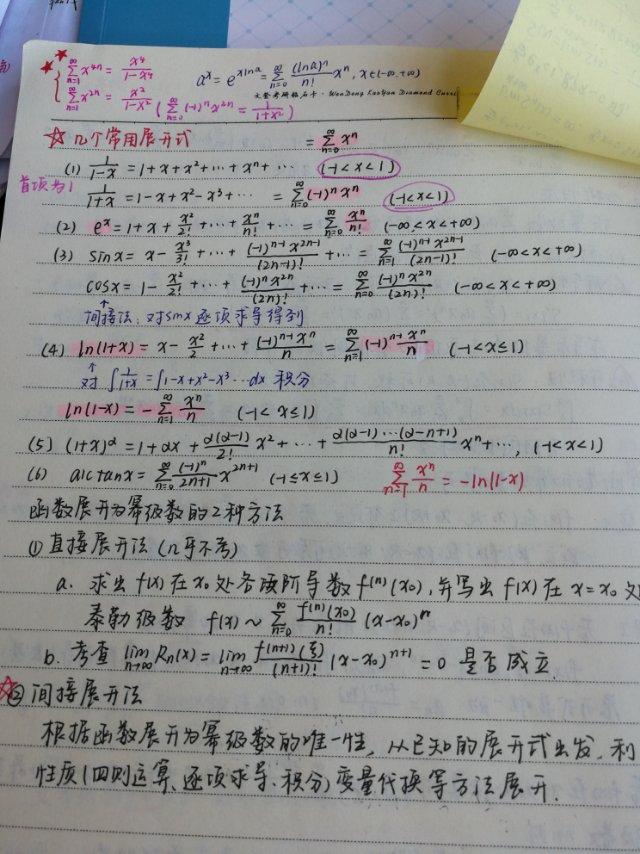 ∑_{n=1}^∞ x^{4n} = x⁴/(1-x⁴)
a^x = e^{xlna} = ∑_{n=0}^∞ (lna)^n/n! x^n, x∈(-∞,+∞)
∑_{n=1}^∞ x^{2n} = x²/(1-x²) (∑_{n=0}^∞ (-1)^n x^{2n} = 1/(1+x²))
文登考研钻石卡·WenDeng KaoYan Diamond
☆ 几个常用展开式
(1) 1/(1-x) = 1+x+x²+⋯+x^n+⋯ = ∑_{n=0}^∞ x^n (-1<x<1)
首项为1
1/(1+x) = 1-x+x²-x³+⋯ = ∑_{n=0}^∞ (-1)^n x^n (-1<x<1)
(2) e^x = 1+x+x²/2!+⋯+x^n/n!+⋯ = ∑_{n=0}^∞ x^n/n! (-∞<x<+∞)
(3) sinx = x-x³/3!+⋯+(-1)^{n-1}x^{2n-1}/(2n-1)!+⋯ = ∑_{n=1}^∞ (-1)^{n-1}x^{2n-1}/(2n-1)! (-∞<x<+∞)
cosx = 1-x²/2!+⋯+(-1)^n x^{2n}/(2n)!+⋯ = ∑_{n=0}^∞ (-1)^n x^{2n}/(2n)! (-∞<x<+∞)
间接法:对sinx逐项求导得到
(4) ln(1+x) = x-x²/2+⋯+(-1)^{n-1}x^n/n = ∑_{n=1}^∞ (-1)^{n-1} x^n/n (-1<x≤1)
对 ∫1/(1+x) = ∫1-x+x²-x³⋯dx 积分
ln(1-x) = -∑_{n=1}^∞ x^n/n (-1<x≤1)
(5) (1+x)^α = 1+αx+α(α-1)/2! x²+⋯+α(α-1)⋯(α-n+1)/n! x^n+⋯, (-1<x<1)
(6) arctanx = ∑_{n=0}^∞ (-1)^n/(2n+1) x^{2n+1} (-1≤x≤1) ∑_{n=1}^∞ x^n/n = -ln(1-x)
函数展开为幂级数的2种方法
① 直接展开法(几乎不考)
a. 求出f(x)在x₀处各项阶导数f^{(n)}(x₀),并写出f(x)在x=x₀处
泰勒级数 f(x)~∑_{n=0}^∞ f^{(n)}(x₀)/n! (x-x₀)^n
b. 考查 lim_{n→∞} R_n(x) = lim_{n→∞} f^{(n+1)}(ξ)/(n+1)! (x-x₀)^{n+1} = 0 是否成立
☆② 间接展开法
根据函数展开为幂级数的唯一性,从已知的展开式出发,利
性质(四则运算、逐项求导、积分)变量代换等方法展开.